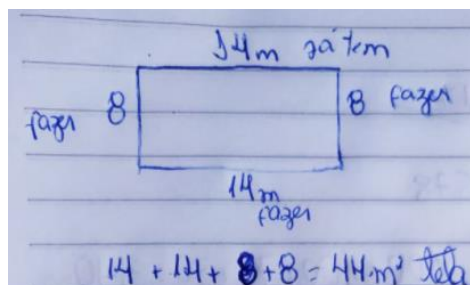 14m já tem
8
8 fazer
fazer
14m
fazer
14 + 14 + 8 + 8 = 44 m² tela